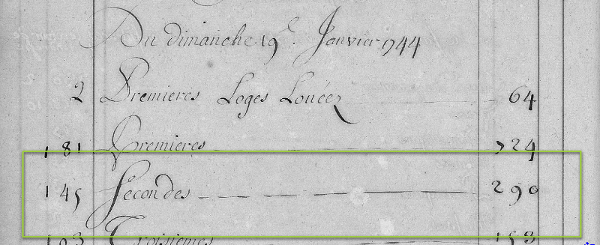 Du dimanche 19e. Janvier 1744
2 Premieres Loges Louéez 64
181 Premieres 724
145 Secondes 290
Troisiemes